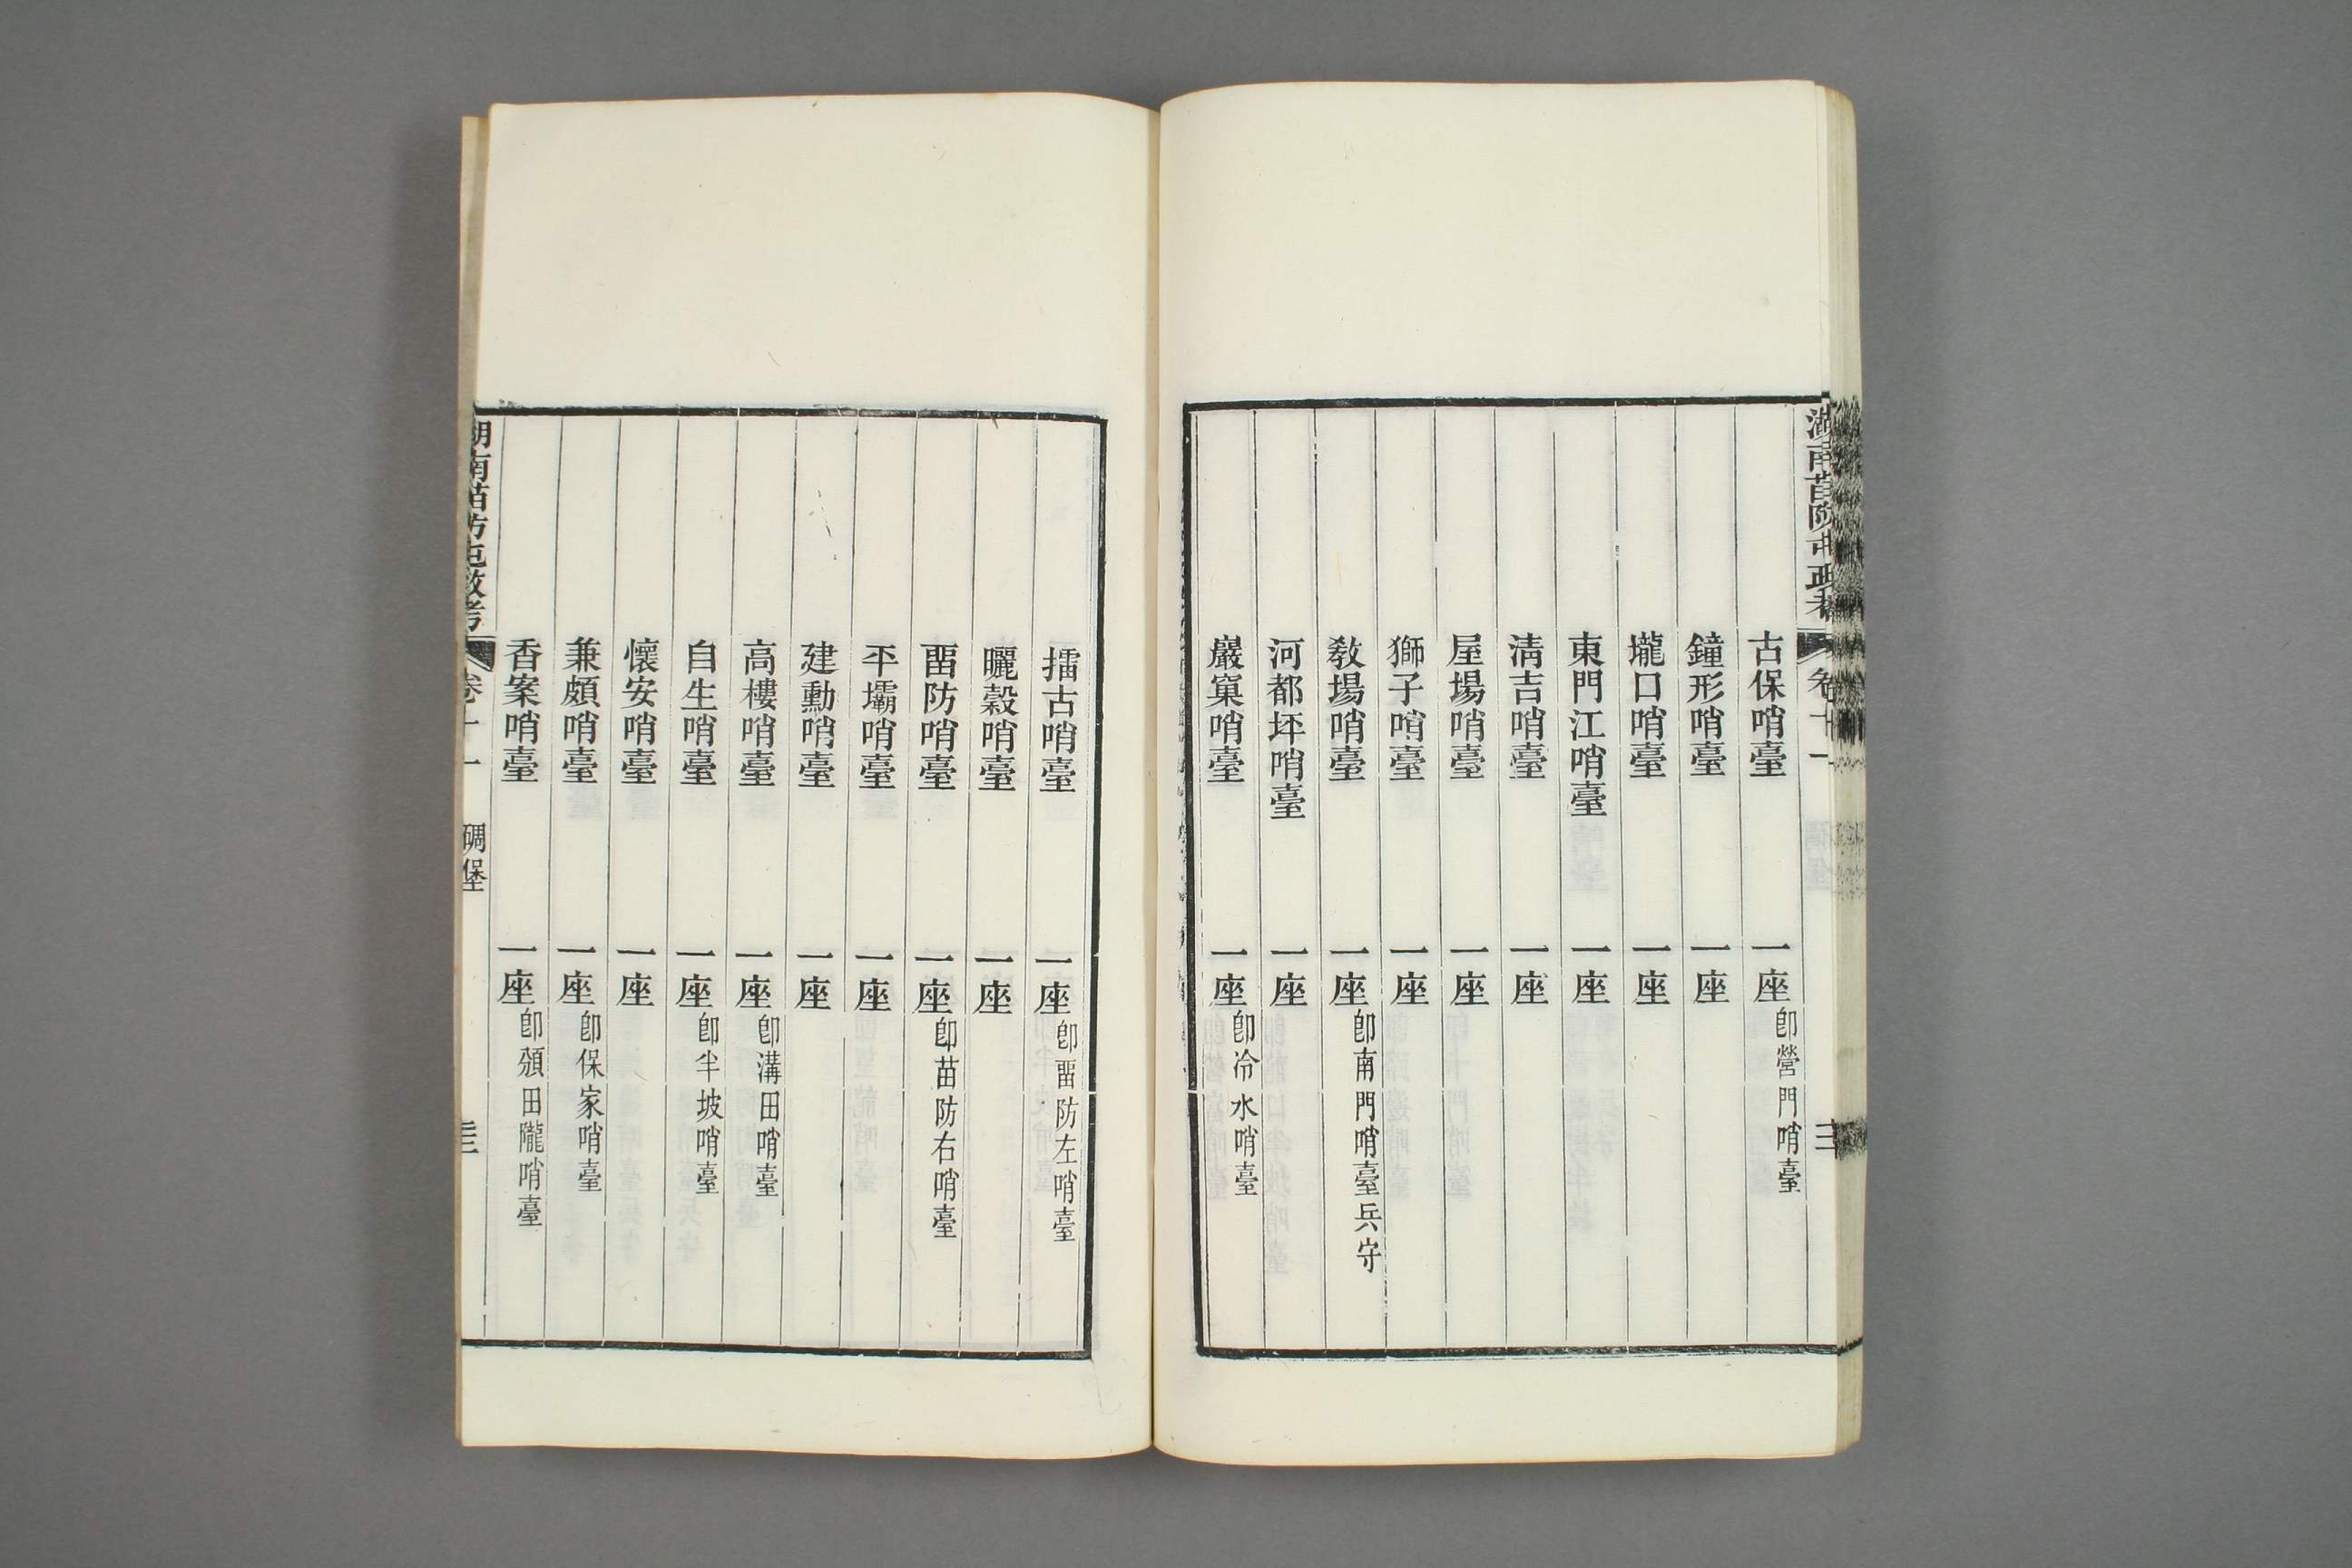 湖南苗防屯政考 卷十一
古保哨臺 一座 卽營門哨臺
鐘形哨臺 一座
壠口哨臺 一座
東門江哨臺 一座
淸吉哨臺 一座
屋場哨臺 一座
獅子哨臺 一座
敎場哨臺 一座 卽南門哨臺兵守
河都坪哨臺 一座
巖窠哨臺 一座 卽冷水哨臺
擂古哨臺 一座 卽畱防左哨臺
曬穀哨臺 一座
畱防哨臺 一座 卽苗防右哨臺
平壩哨臺 一座
建勳哨臺 一座
高樓哨臺 一座 卽溝田哨臺
自生哨臺 一座 卽半坡哨臺
懷安哨臺 一座
兼頗哨臺 一座 卽保家哨臺
香案哨臺 一座 卽頟田隴哨臺
湖南苗防屯政考 卷十一 碉堡